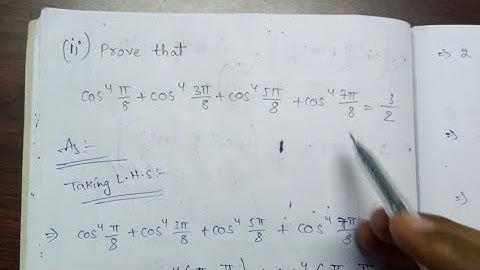 (ii) Prove that
cos⁴ π/8 + cos⁴ 3π/8 + cos⁴ 5π/8 + cos⁴ 7π/8 = 3/2
As:-
Taking L.H.S:-
⇒ cos⁴ π/8 + cos⁴ 3π/8 + cos⁴ 5π/8 + cos⁴ 7π/8
⇒ 2
⇒
⇒